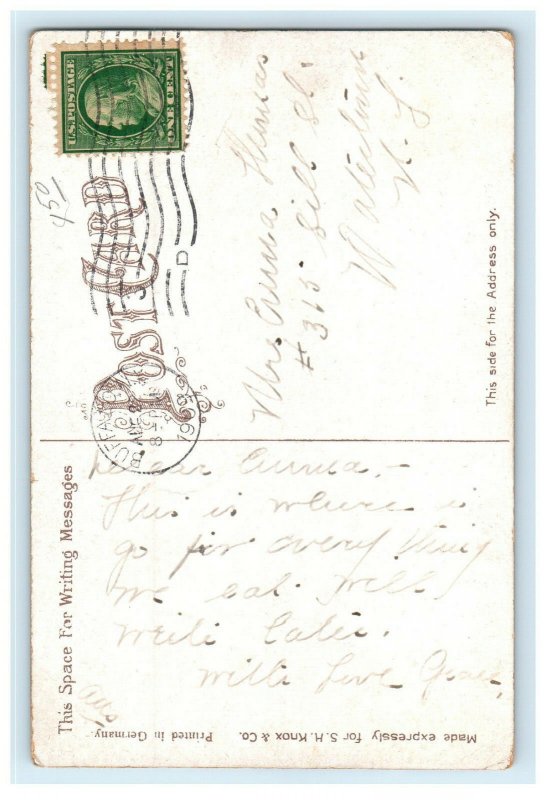 U.S. POSTAGE
ONE CENT
450
POST CARD
BUFFALO
8
19
D
Mrs Emma Thomas
# 315 Gill St.
Watertown
N. Y.
This side for the Address only.
This Space For Writing Messages
Dear Emma, -
This is where i
go for every thing
we eat. Will
write later.
With Love Grace
Printed in Germany.
Made expressly for S. H. Knox & Co.